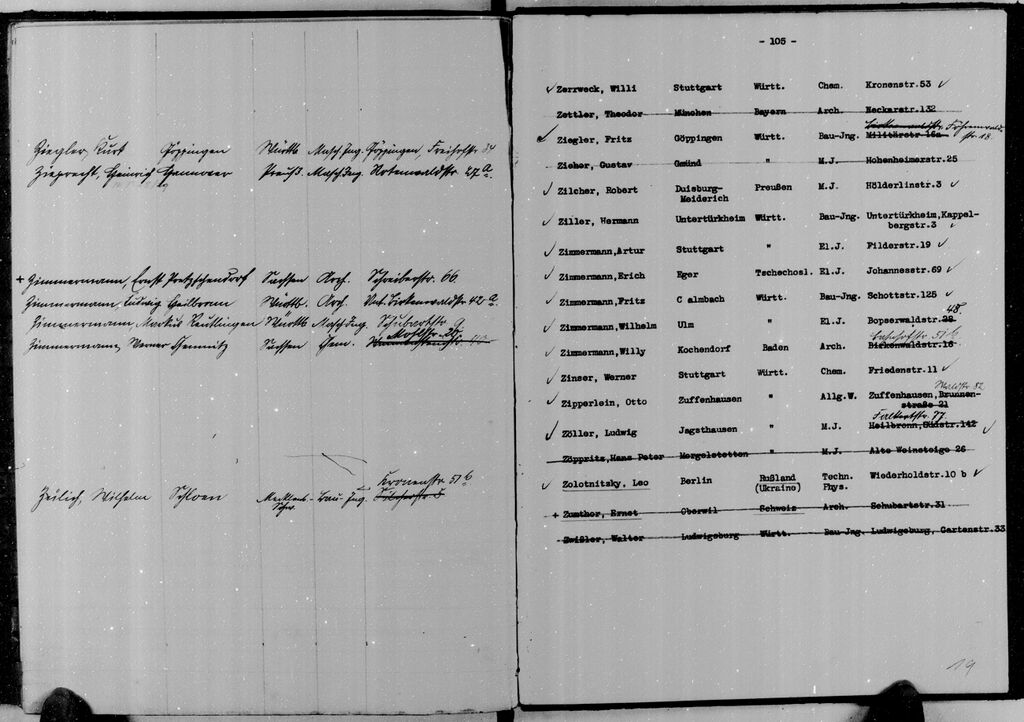 Ziegler, Kurt Göppingen Württb. Masch.Ing. Göppingen, Freihofstr. 34
Zieprecht, Heinrich Hannover Preuß. Masch.Ing. Rotenwaldstr. 27 a.
+ Zimmermann, Ernst Pretzschendorf Sachsen Arch. Schreiberstr. 66.
Zimmermann Ludwig Heilbronn Württb. Arch. Unt. Birkenwaldstr. 42 a.
Zimmermann Markus Reutlingen Württb. Masch.Ing. Schubartstr.
Zimmermann, Werner Chemnitz Sachsen Chem. Moststr.
Kronenstr. 51 b
Zeilich, Wilhelm Mecklenb. Bau-Ing.
Schw.
- 105 -
✓ Zerrweck, Willi Stuttgart Württ. Chem. Kronenstr.53 ✓
Zettler, Theodor München Bayern Arch. Neckarstr.132
Föhrenwald-
✓ Ziegler, Fritz Göppingen Württ. Bau-Jng. Militärstr.16a str. 18
Zieher, Gustav Gmünd " M.J. Hohenheimerstr.25
✓ Zilcher, Robert Duisburg- Preußen M.J. Hölderlinstr.3 ✓
Meiderich
✓ Ziller, Hermann Untertürkheim Württ. Bau-Jng. Untertürkheim,Kappel-
bergstr.3 ✓
✓ Zimmermann,Artur Stuttgart " El.J. Filderstr.19 ✓
✓ Zimmermann,Erich Eger Tschechosl. El.J. Johannesstr.69 ✓
✓ Zimmermann,Fritz C almbach Württ. Bau-Jng. Schottstr.125 ✓
48.
✓ Zimmermann,Wilhelm Ulm " El.J. Bopserwaldstr.28
Bahnhofstr. 51 b
✓ Zimmermann,Willy Kochendorf Baden Arch. Birkenwaldstr.16
✓ Zinser, Werner Stuttgart Württ. Chem. Friedenstr.11 ✓
Waldstr. 82
✓ Zipperlein, Otto Zuffenhausen " Allg.W. Zuffenhausen,Brunnen-
straße 21
Falkertstr. 77.
✓ Zöller, Ludwig Jagsthausen " M.J. Heilbronn,Südstr.142 ✓
Zöppritz,Hans Peter Mergelstetten " M.J. Alte Weinsteige 26
✓ Zolotnitzky, Leo Berlin Rußland Techn. Wiederholdstr.10 b ✓
(Ukraine) Phys.
+ Zumthor, Ernst Oberwil Schweiz Arch. Schubartstr.31
Zwißler, Walter Ludwigsburg Württ. Bau-Jng. Ludwigsburg, Gartenstr.33
19